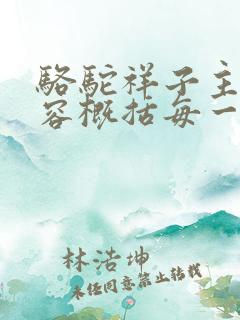 骆駝祥子主
容概括每一
林浩坤
未经同意禁止转载